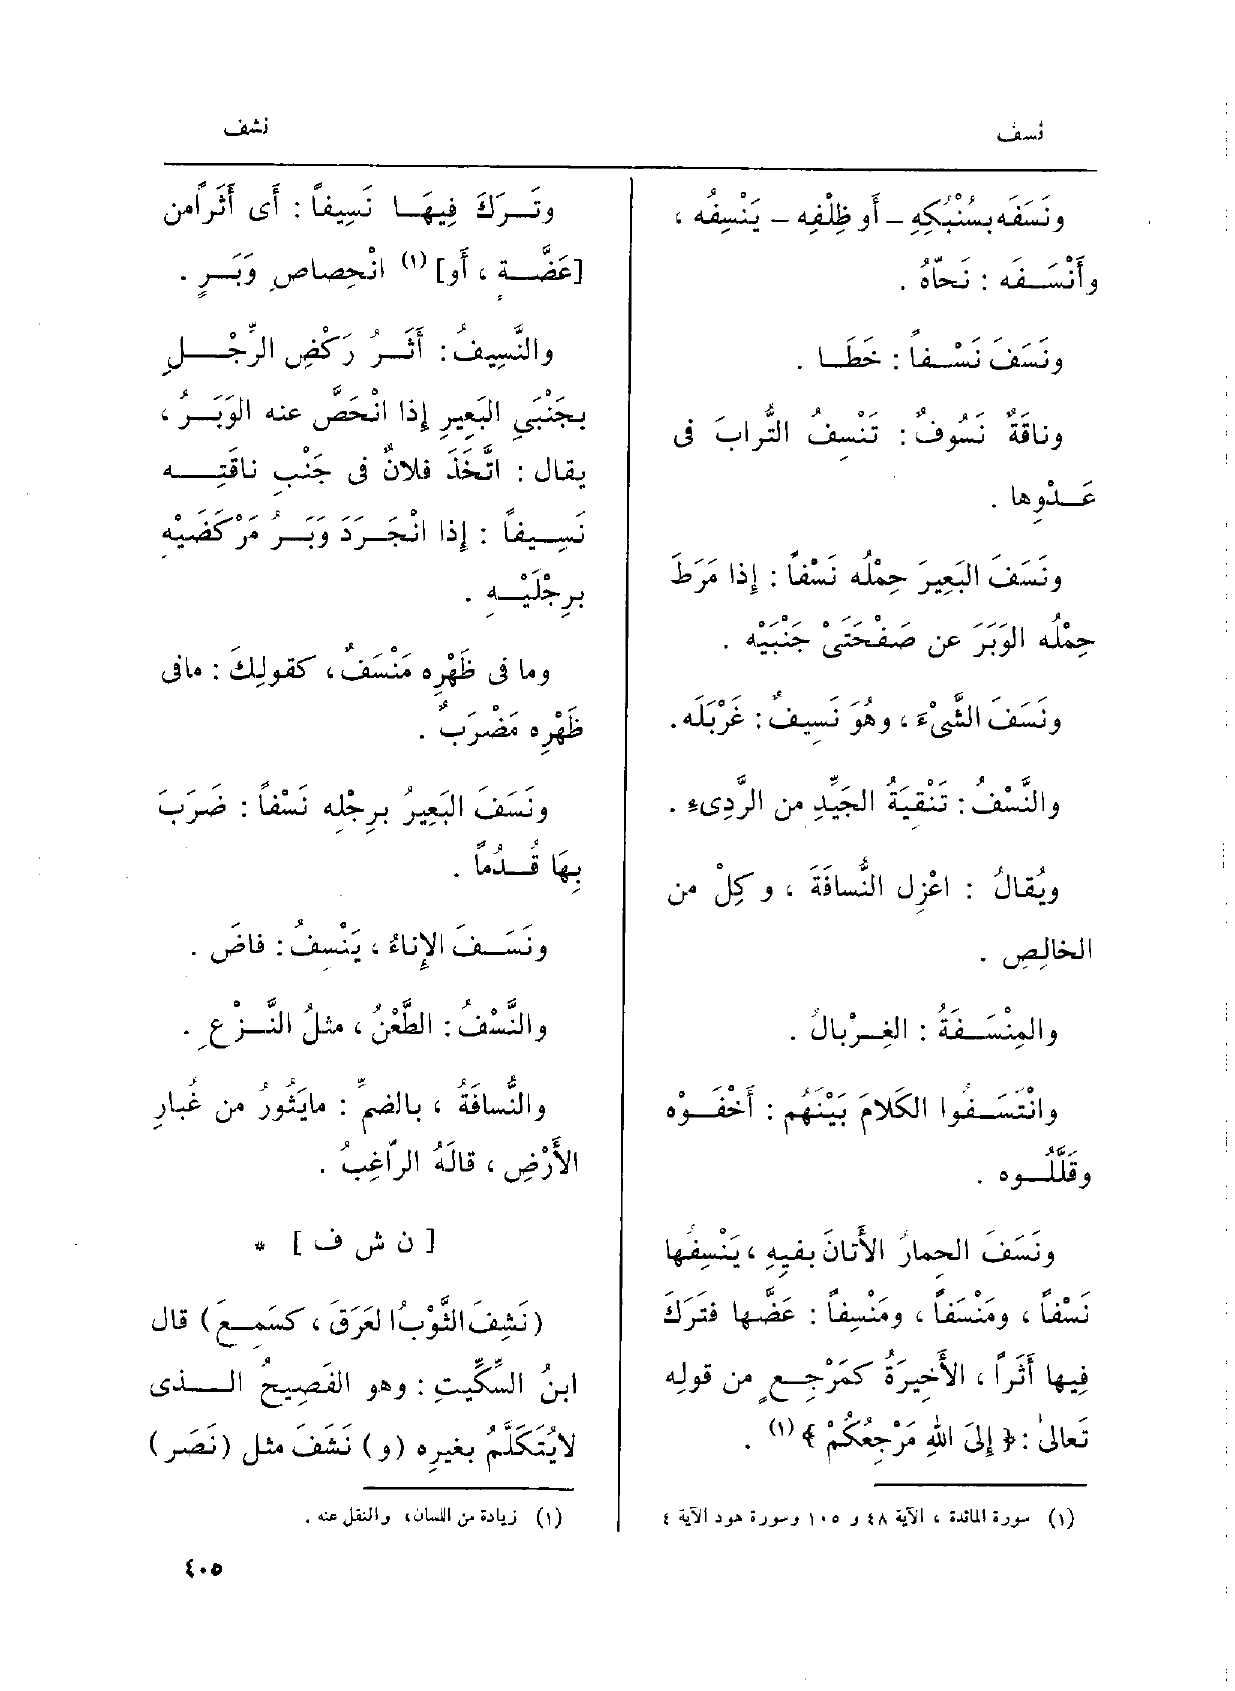 نسف
نشف
ونَسَفَه بسُنْبُكِهِ - أَو ظِلْفِه - يَنْسِفُه ،
وأَنْسَفَه : نَحّاهُ .
ونَسَفَ نَسْفاً : خَطَا .
وناقَةٌ نَسُوفٌ : تَنْسِفُ التُّرابَ فى
عَدْوِها .
ونَسَفَ البَعِيرَ حِمْلُه نَسْفاً : إِذا مَرَطَ
حِمْلُه الوَبَرَ عن صَفْحَتَىْ جَنْبَيْه .
ونَسَفَ الشَّىْءَ ، وهُوَ نَسِيفٌ : غَرْبَلَه .
والنَّسْفُ : تَنْقِيَةُ الجَيِّدِ من الرَّدِىءِ .
ويُقالُ : اعْزِل النُّسافَةَ ، و كِلْ من
الخالِصِ .
والمِنْسَفَةُ : الغِرْبالُ .
وانْتَسَفُوا الكَلامَ بَيْنَهُم : أَخْفَوْه
وقَلَّلُوه .
ونَسَفَ الحِمارُ الأَتانَ بفِيهِ ، يَنْسِفُها
نَسْفاً ، ومَنْسَفاً ، ومَنْسِفاً : عَضَّها فتَرَكَ
فِيها أَثَراً ، الأَخِيرَةُ كمَرْجِعٍ من قولِه
تَعالىٰ : ﴿ إِلَى اللهِ مَرْجِعُكُمْ ﴾ (١) .
(١) سورة المائدة ، الآية ٤٨ و ١٠٥ وسورة هود الآية ٤
وتَرَكَ فِيهَا نَسِيفاً : أَى أَثَراً من
[عَضَّةٍ ، أَو] (١) انْحِصاصِ وَبَرٍ .
والنَّسِيفُ : أَثَرُ رَكْضِ الرَّجُلِ
بجَنْبَىِ البَعِيرِ إِذا انْحَصَّ عنه الوَبَرُ ،
يقال : اتَّخَذَ فلانٌ فى جَنْبِ ناقَتِه
نَسِيفاً : إِذا انْجَرَدَ وَبَرُ مَرْكَضَيْهِ
برِجْلَيْهِ .
وما فى ظَهْرِه مَنْسَفٌ ، كقولِكَ : مافى
ظَهْرِه مَضْرَبٌ .
ونَسَفَ البَعِيرُ برِجْلِه نَسْفاً : ضَرَبَ
بِهَا قُدُماً .
ونَسَفَ الإِناءُ ، يَنْسِفُ : فاضَ .
والنَّسْفُ : الطَّعْنُ ، مثلُ النَّزْعِ .
والنُّسافَةُ ، بالضمِّ : مايَثُورُ من غُبارِ
الأَرْضِ ، قالَهُ الرّاغِبُ .
[ ن ش ف ] *
(نَشِفَ الثَّوْبُ العَرَقَ ، كسَمِعَ) قال
ابنُ السِّكِّيتِ : وهو الفَصِيحُ الذى
لايُتَكَلَّمُ بغيرِه (و) نَشَفَ مثل (نَصَر)
(١) زيادة من اللسان، والنقل عنه .
٤٠٥